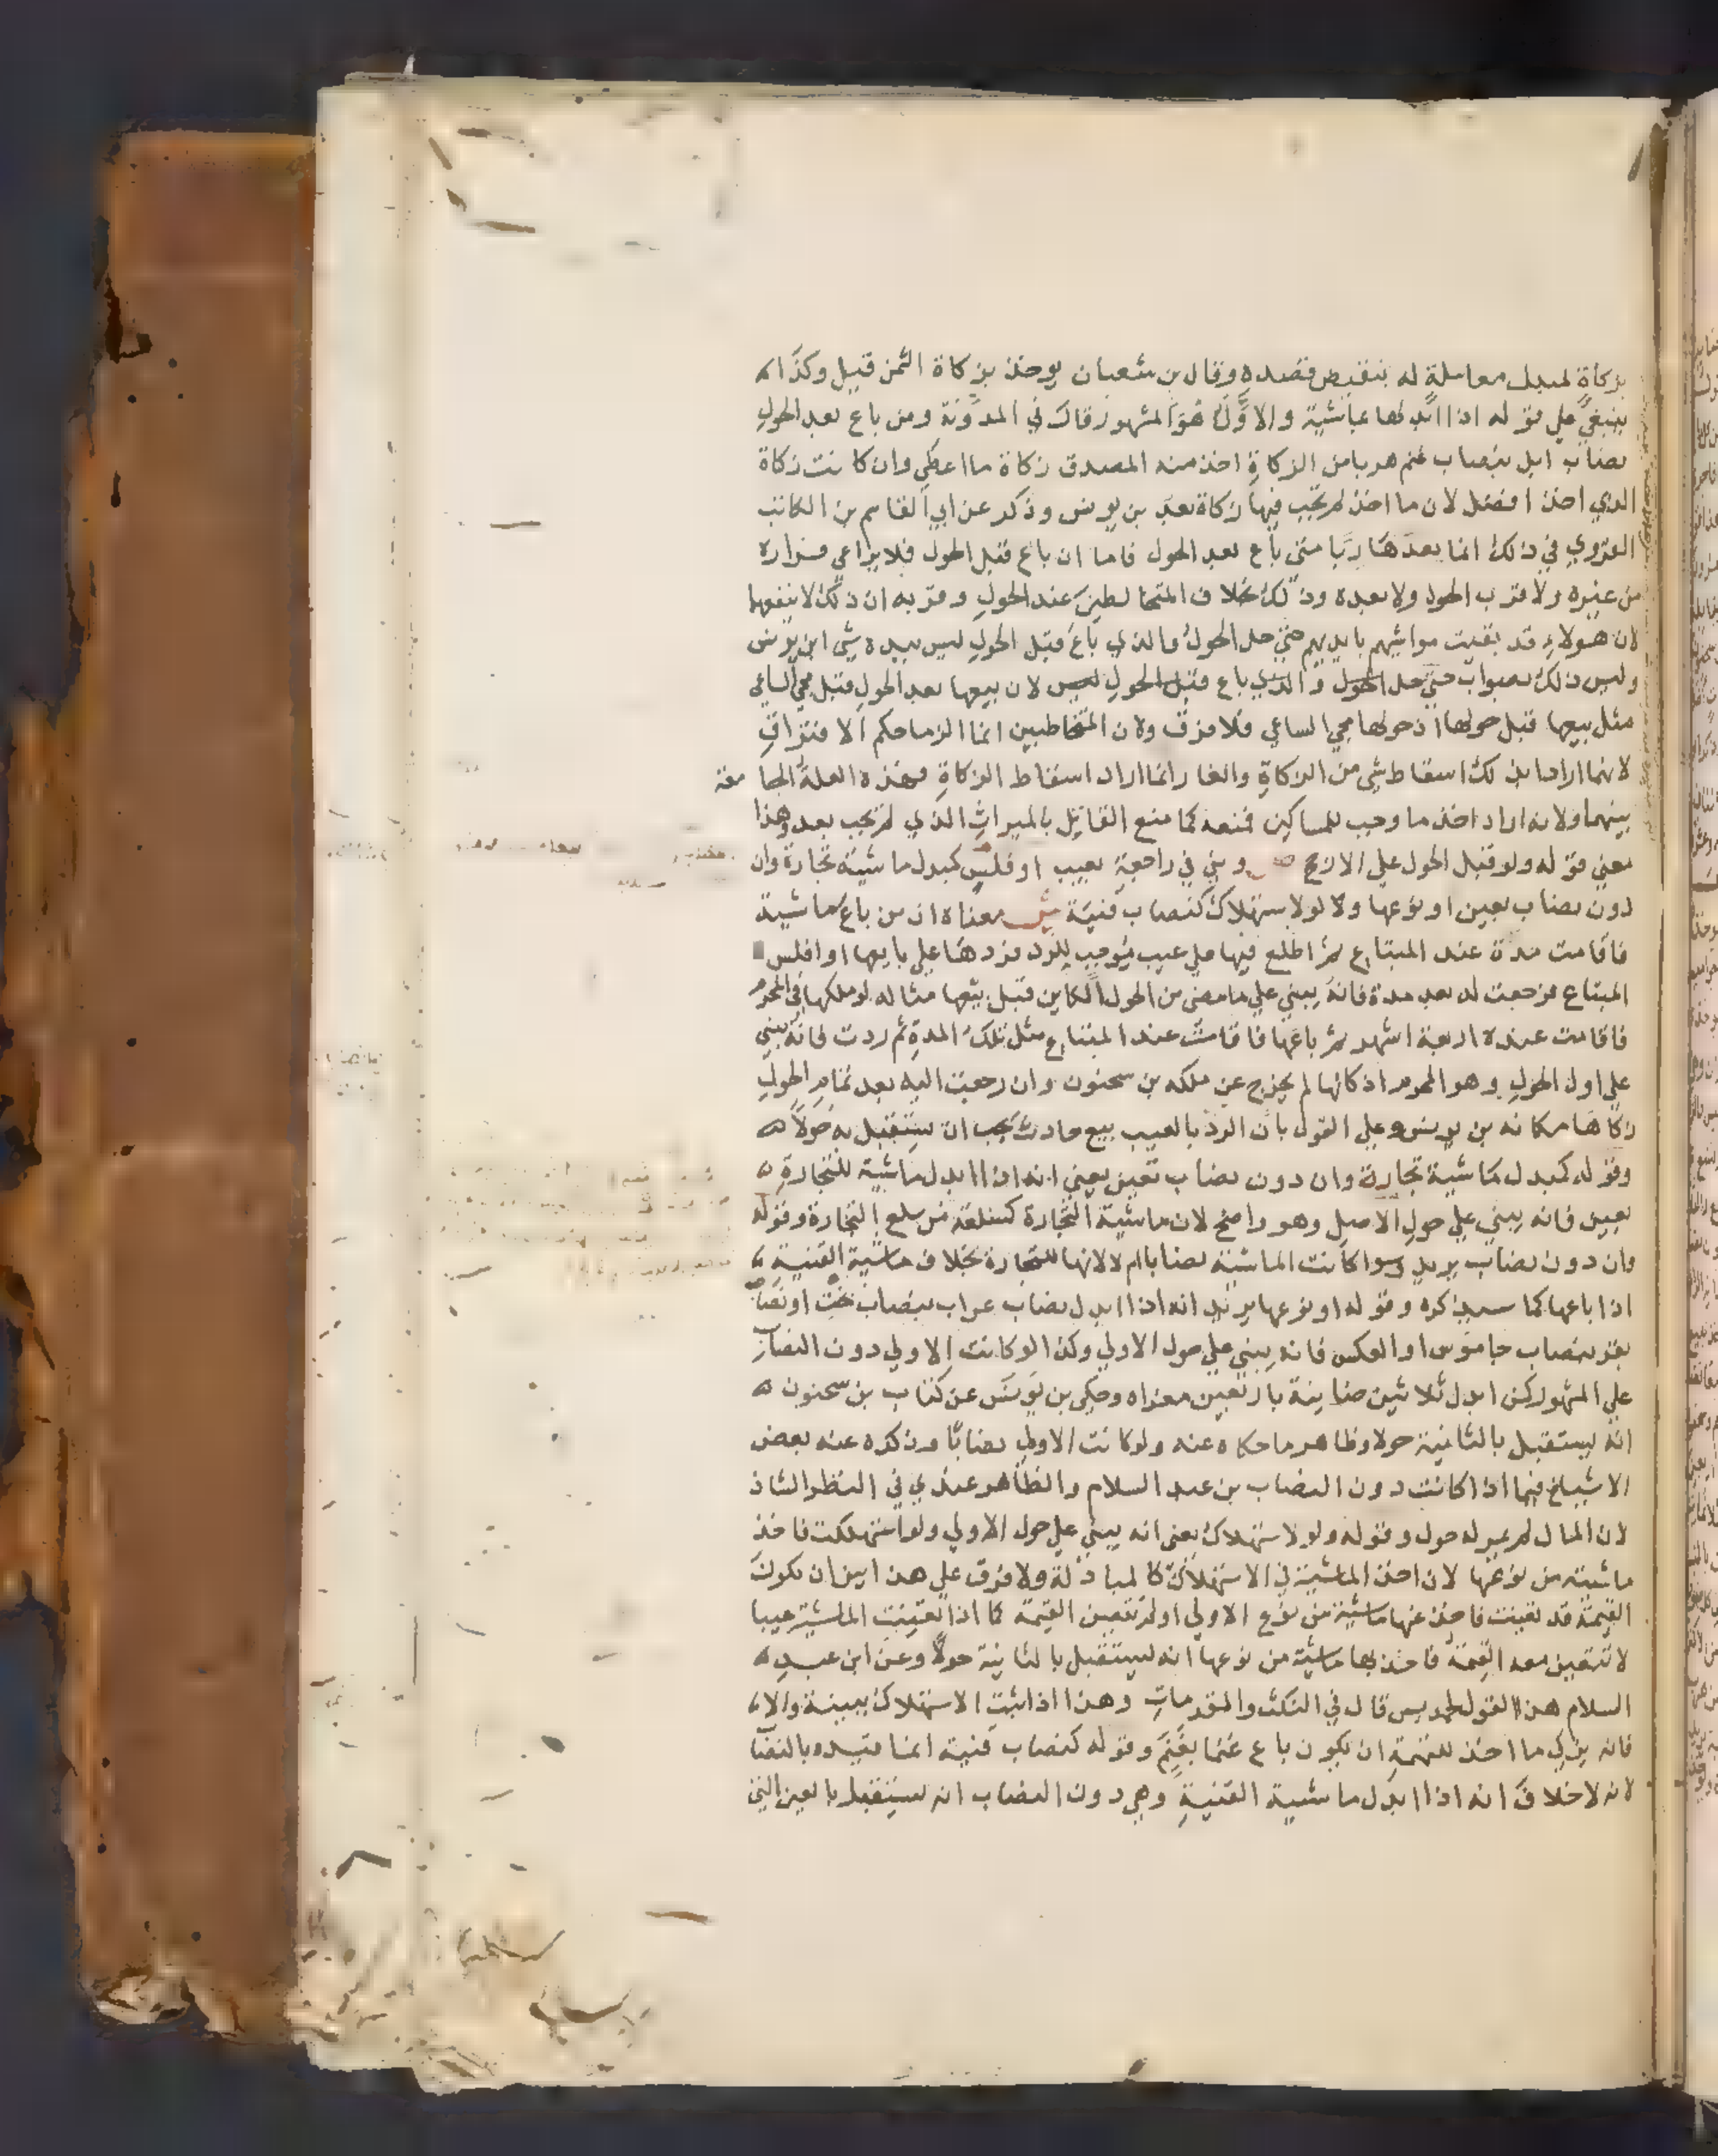 بزكاة لمبدل معاملة له بنقيض قصده وقال بن شعبان يوخذ بزكاة الثمن قيل وكذا
ينبغي علي قوله اذا ابدلها بماشية والاول هو المشهور قال في المدونة ومن باع بعد الحول
نصاب ابل بنصاب غنم هربا من الزكاة اخذ منه المصدق زكاة ما اعطي وان كانت زكاة
الذي اخذ افضل لان ما اخذ لم تجب فيها زكاة بعد بن يونس وذكر عن ابي القاسم بن الكاتب
القروي في ذلك انما يعد هاربا متي باع بعد الحول فاما ان باع قبل الحول فلا يراعي فراره
من غيره ولا قرب الحول ولا بعده وذلك بخلاف المتخالطين عند الحول وقربه ان ذلك لا ينفعهما
لان هولاء قد بقيت مواشيهم بايديهم حتي حل الحول والذي باع قبل الحول ليس بيده شي ابن يونس
وليس ذلك بصواب حتي حل الحول والذي باع قبل الحول ليس لان بيعها بعد الحول قبل مجي الساعي
مثل بيعها قبل حولها اذ حولها مجي الساعي فلا فرق ولان المتخاطبين انما الزما حكم الافتراق
لانهما ارادا بذلك اسقاط شي من الزكاة والفار انما اراد اسقاط الزكاة فهذه العلة الجامعة
بينهما ولانه اراد اخذ ما وجب للمساكين فمنعه كما منع القاتل بالميراث الذي لم يجب بعد وهذا
معني قوله ولو قبل الحول علي الارجح ص وبني في راجعة بعيب او فلس كمبدل ماشية تجارة وان
دون نصاب بعين او نوعها ولو لاستهلاك كنصاب قنية ش معناه ان من باع ماشية
فاقامت مدة عند المبتاع ثم اطلع فيها علي عيب يوجب للرد فردها علي بايعها او افلس
المبتاع فرجعت له بعد مدة فانه يبني علي ما مضي من الحول الكاين قبل بيعها مثاله لو ملكها في المحرم
فاقامت عنده اربعة اشهر ثم باعها فاقامت عند المبتاع مثل تلك المدة ثم ردت فانه يبني
علي اول الحول وهو المحرم اذ كانها لم يخرج عن ملكه بن سحنون وان رجعت اليه بعد تمام الحول
زكاها مكانه بن يونس وعلي القول بان الرد بالعيب بيع حادث يجب ان يستقبل به حولا
وقوله كمبدل ماشية تجارة وان دون نصاب بعين يعني انه اذا ابدل ماشية للتجارة
بعين فانه يبني علي حول الاصل وهو واضح لان ماشية التجارة كسلعة من سلع التجارة وقوله
وان دون نصاب يريد وسوا كانت الماشية نصابا ام لا لانها للتجارة بخلاف ماشية القنية
اذا باعها كما سيذكره وقوله او نوعها يريد انه اذا ابدل نصاب عراب بنصاب بخت او نصاب
بقر بنصاب جاموس او العكس فانه يبني علي حول الاولي وكذا لو كانت الاولي دون النصاب
علي المشهور كمن ابدل ثلاثين ضاينة باربعين معزاه وحكي بن يونس عن كتاب بن سحنون
انه يستقبل بالثانية حولا وظاهر ما حكاه عنه ولو كانت الاولي نصابا وذكره عنه بعض
الاشياخ فيما اذا كانت دون النصاب بن عبد السلام والظاهر عندي في النظر الشاذ
لان المال لم يمر له حول وقوله ولو لاستهلاك يعني انه يبني علي حول الاولي ولو استهلكت فاخذ
ماشية من نوعها لان اخذ الماشية في الاستهلاك كالمبادلة ولا فرق علي هذا بين ان تكون
القيمة قد تعينت فاخذ عنها ماشية من نوع الاولي او لم تتعين القيمة كما اذا تعيبت الماشية عيبا
لا تتعين معه القيمة فاخذ بها ماشية من نوعها انه ليستقبل بالثانية حولا وعن ابن عبد
السلام هذا القول لحمديس قال في النكت والمقدمات وهذا اذا ثبت الاستهلاك ببينة والا
فانه يزكي ما اخذ للتهمة ان يكون باع غنما بغنم وقوله كنصاب قنية انما قيده بالنصاب
لانه لا خلاف انه اذا ابدل ماشية القنية وهي دون النصاب انه يستقبل بالعين التي